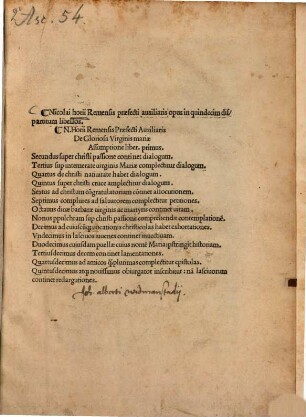 2° Asc. 54.
¶Nicolai horii Remensis præfecti auxiliaris opus in quindecim di-
partitum libellos.
¶N. Horii Remensis Præfecti Auxiliaris
De Gloriosa Virginis mariæ
Assumptione liber. primus.
Secundus super christi passione continet dialogum.
Tertius sup intemerate virginis Mariæ complectitur dialogum.
Quartus de christi natiuitate habet dialogum.
Quintus super christi cruce amplectitur dialogum.
Sextus ad christum cōgratulatoriam cōtinet allocutionem.
Septimus complures ad saluatorem complectitur petitiones.
Octauus diuæ barbaræ virginis acutatrycis continet vitam.
Nonus pulchram sup christi passione comprehendit contemplationē.
Decimus ad cuiusq; quatiores christicolas habet exhortationes.
Vndecimus in lasciuos amores continet inuectiuam.
Duodecimus cuiusdam puellæ cuius nomē Maria perstringit historiam.
Tertiusdecimus decem continet lamentationes.
Quartusdecimus ad amicos cōplurimas complectitur epistolas.
Quintusdecimus atq; nouissimus obiurgator inscribitur: nā lasciuorum
continet indurgationes.
Joh. alberti widmanstadij.